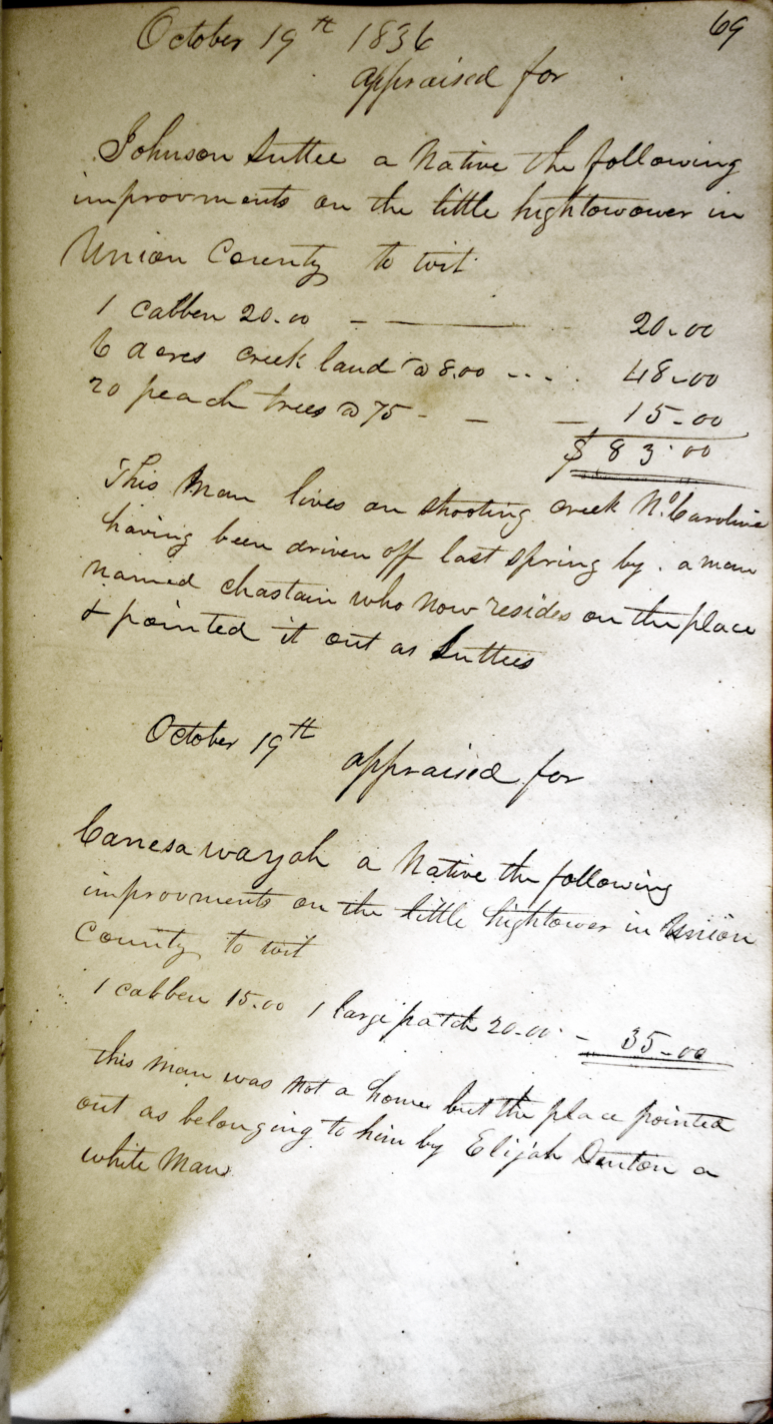 69
October 19th 1836
appraised for
Johnson Suttee a Native the following
improvments on the little hightowower in
Union County to wit
1 cabben 20.00 - — 20.00
6 acres creek land @ 8.00 - - - . 48.00
20 peach trees @ 75 - - - 15.00
$83.00
This Man lives on shooting creek No. Carolina
having been driven off last spring by . a man
named chastain who now resides on the place
& pointed it out as Suttees
October 19th appraised for
Canesawayah a Native the following
improvments on the little hightower in Union
County to wit
1 cabben 15.00 1 large patch 20.00 - 35.00
this man was not a home but the place pointed
out as belonging to him by Elijah Denton a
white Man